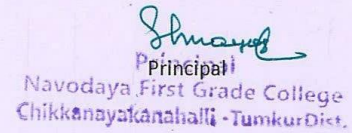 Principal
Principal
Navodaya First Grade College
Chikkanayakanahalli - Tumkur Dist.